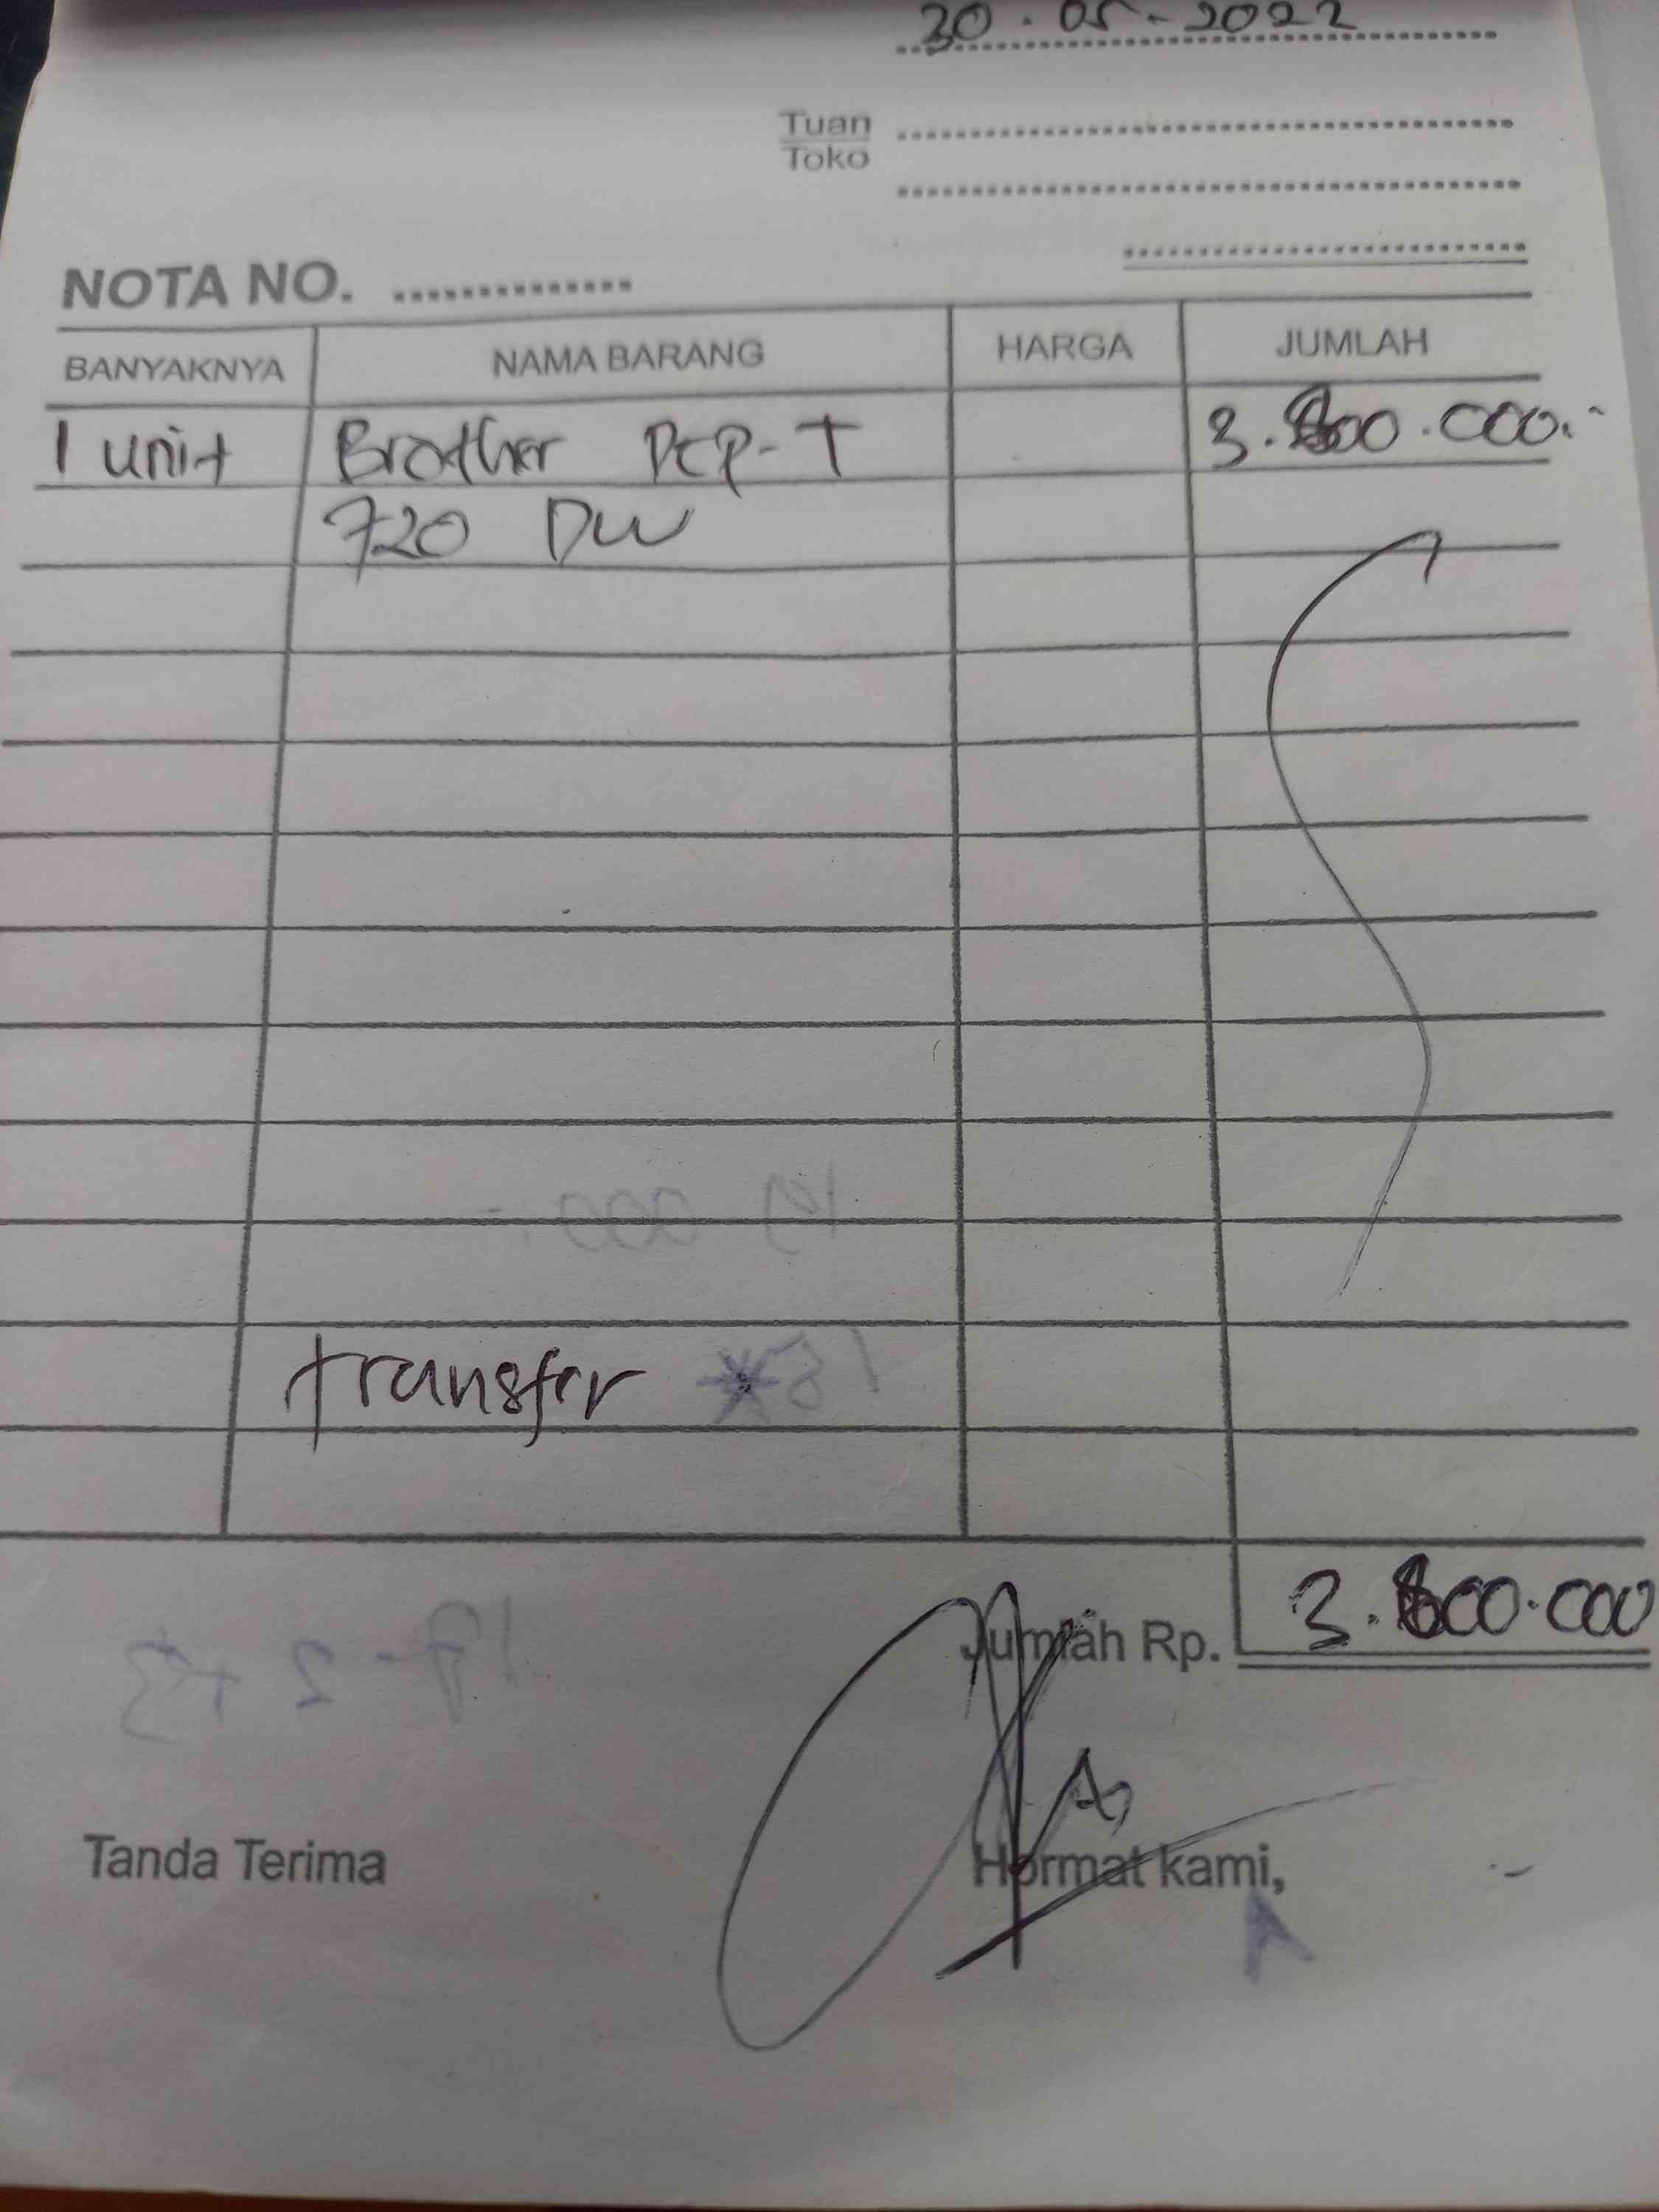 30 - 05 - 2022
Tuan
Toko
NOTA NO.
BANYAKNYA NAMA BARANG HARGA JUMLAH
1 unit Brother DCP-T 3.800.000.-
720 DW
transfer
Jumlah Rp. 3.800.000
Tanda Terima Hormat kami,